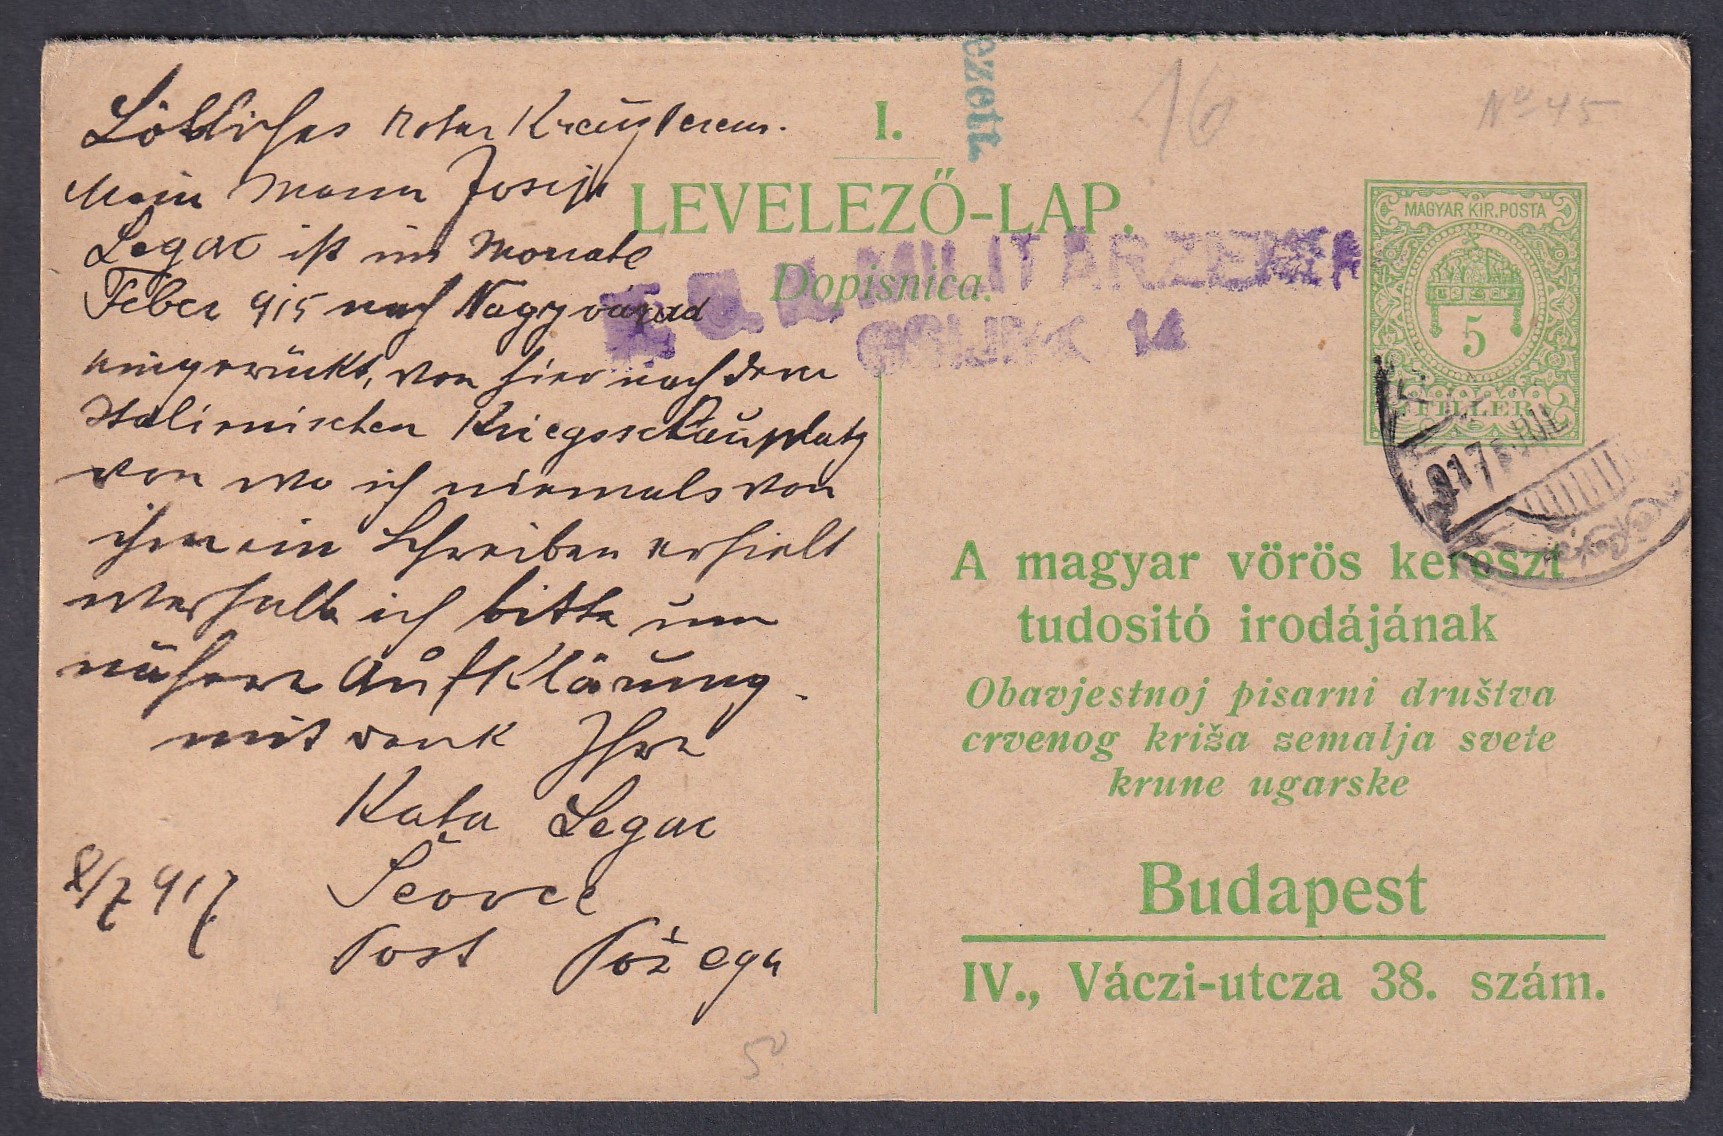 Löbliches roter Kreuzverein.
Mein Mann Josip
Legac ist im Monate
Feber 915 nach Nagyvárad
eingerückt, von hier nach dem
Italienischen Kriegsschauplatz
von wo ich niemals von
ihm ein Schreiben erhielt
weshalb ich bitte um
nähere Aufklärung.
mit Dank Ihre
Kata Legac
Post Požega
8/7 917
50
ezett.
16
Nº 45
I.
LEVELEZŐ-LAP.
Dopisnica.
K. u. K. MILITÄRZENSUR
14
MAGYAR KIR. POSTA
5
FILLÉR
917 JUL
A magyar vörös kereszt
tudositó irodájának
Obavjestnoj pisarni društva
crvenog križa zemalja svete
krune ugarske
Budapest
IV., Váczi-utcza 38. szám.